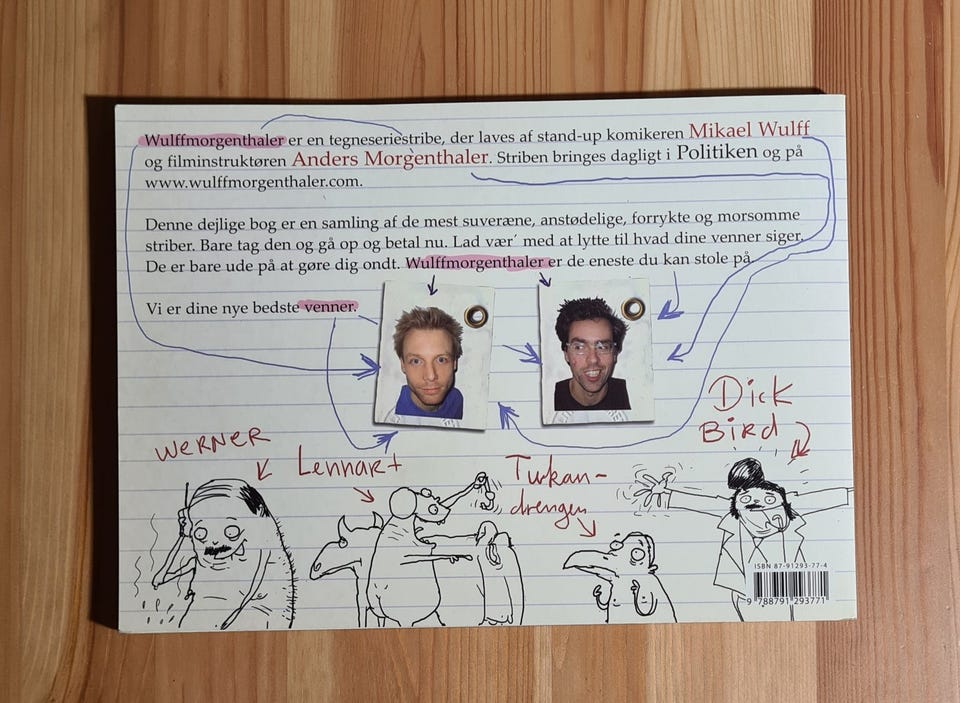 Wulffmorgenthaler er en tegneseriestribe, der laves af stand-up komikeren Mikael Wulff
og filminstruktøren Anders Morgenthaler. Striben bringes dagligt i Politiken og på
www.wulffmorgenthaler.com.
Denne dejlige bog er en samling af de mest suveræne, anstødelige, forrykte og morsomme
striber. Bare tag den og gå op og betal nu. Lad vær´ med at lytte til hvad dine venner siger.
De er bare ude på at gøre dig ondt. Wulffmorgenthaler er de eneste du kan stole på.
Vi er dine nye bedste venner.
WERNER
Lennart
Turkan-
drengen
Dick
Bird
ISBN 87-91293-77-4
9 788791 293771